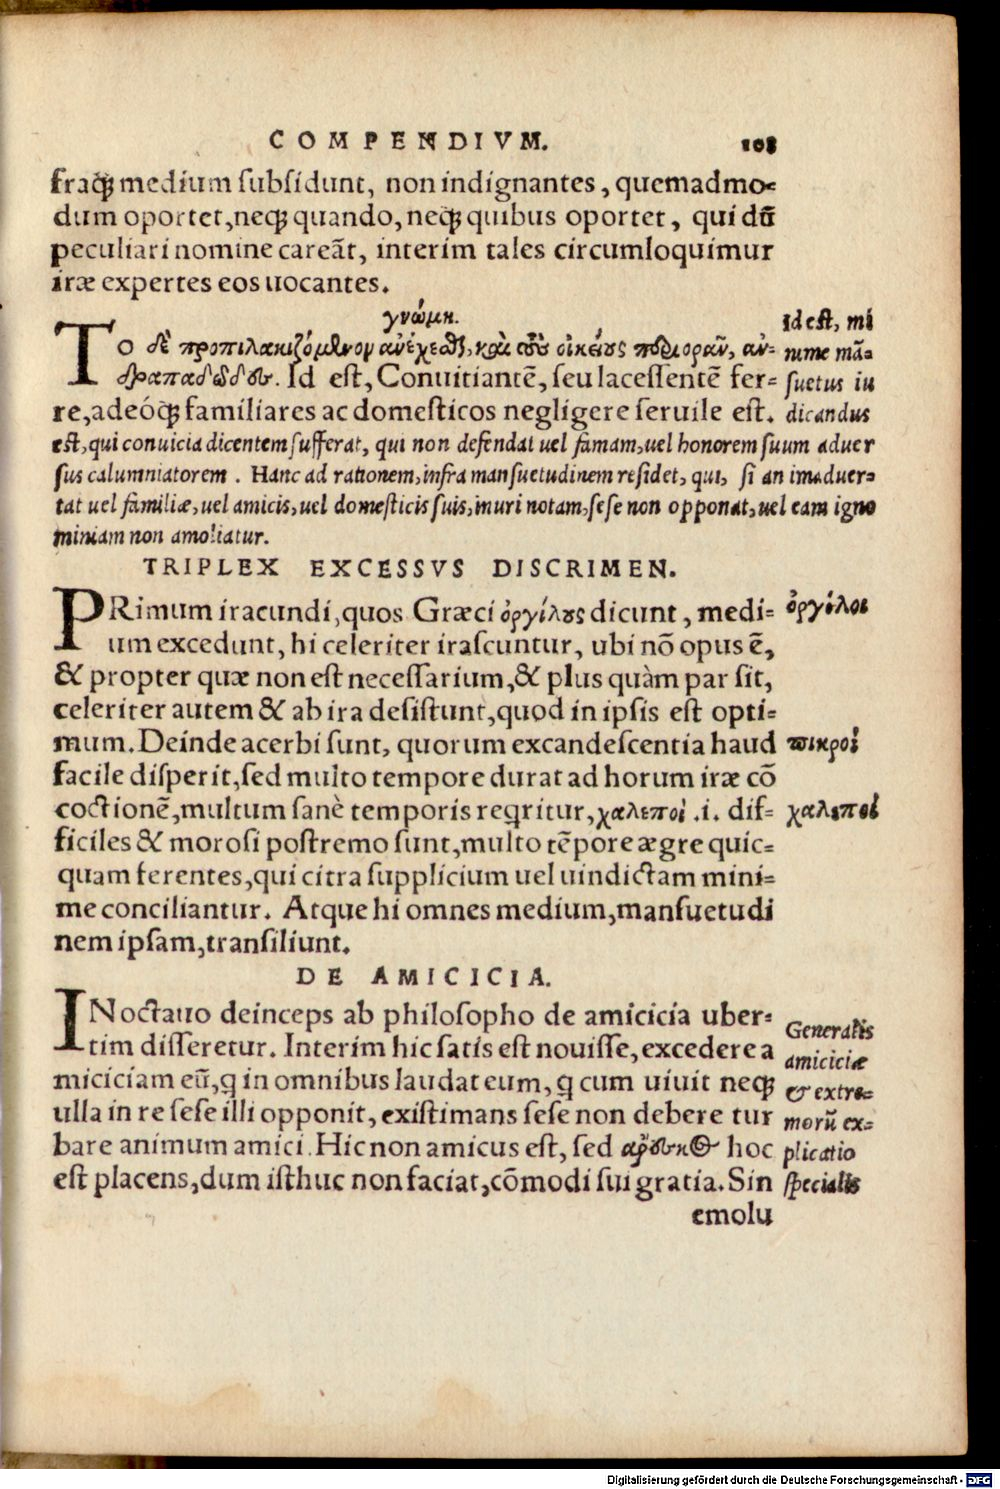 COMPENDIVM. 108
fraq́; medium subsidunt, non indignantes, quemadmo-
dum oportet, neq; quando, neq; quibus oportet, qui dū
peculiari nomine careāt, interim tales circumloquimur
iræ expertes eos uocantes.
γνώμη.
TO δὲ προπιλακιζόμενον ανέχεσθ, καὶ τοὺς οἰκείους περιοραῖν, αν-
δραπαδῶδες. Id est, Conuitiantē, seu lacessentē fer-
re, adeóq; familiares ac domesticos negligere seruile est.
Id est, mi
nime mā-
suetus iu
dicandus
est, qui conuicia dicentem sufferat, qui non defendat uel famam, uel honorem suum aduer
sus calumniatorem. Hanc ad rationem, infra mansuetudinem residet, qui, si animaduer-
tat uel familiæ, uel amicis, uel domesticis suis, inuri notam, sese non opponat, uel eam igno
miniam non amoliatur.
TRIPLEX EXCESSVS DISCRIMEN.
PRimum iracundi, quos Græci ὀργίλους dicunt, medi-
um excedunt, hi celeriter irascuntur, ubi nō opus ē,
& propter quæ non est necessarium, & plus quàm par sit,
celeriter autem & ab ira desistunt, quod in ipsis est opti-
mum. Deinde acerbi sunt, quorum excandescentia haud
facile disperit, sed multo tempore durat ad horum iræ cō
coctionē, multum sanè temporis reqritur, χαλεποὶ .i. dif-
ficiles & morosi postremo sunt, multo tēpore ægre quic-
quam ferentes, qui citra supplicium uel uindictam mini-
me conciliantur. Atque hi omnes medium, mansuetudi
nem ipsam, transiliunt.
ὀργίλοι
πικροὶ
χαλεποὶ
DE AMICICIA.
INoctauo deinceps ab philosopho de amicicia uber-
tim disseretur. Interim hic satis est nouisse, excedere a
miciciam eū, q in omnibus laudat eum, q cum uiuit neq;
ulla in re sese illi opponit, existimans sese non debere tur
bare animum amici. Hic non amicus est, sed hoc
est placens, dum isthuc non faciat, cōmodi sui gratia. Sin
emolu
Generalis
amiciciæ
& extre-
morū ex-
plicatio
specialis
Digitalisierung gefördert durch die Deutsche Forschungsgemeinschaft - DFG